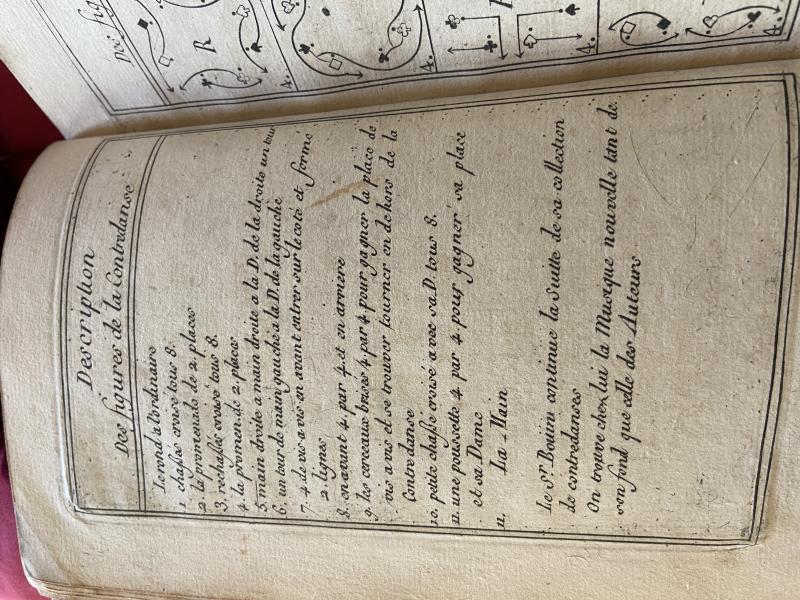 Description
Des figures de la Contredanse
Le rond a l'ordinaire
1. chassés croisé tous 8.
2. la promenade de 2. places
3. rechassés croisé tous 8.
4. la promen. de 2. places
5. main droite a main droite a la D. de la droite un tour
6. un tour de main gauche a la D. de la gauche
7. 4. de vis a vis en avant entrer sur le coté et forme
2. Lignes
8. en avant 4. par 4. et en arriere
9. les cerceaux brisés 4 par 4 pour gagner la place de
vis a vis et se trouver tourner en dehors de la
Contredanse
10. petite chassé croisé avec sa D. tous 8.
11. une poussette 4 par 4 pour gagner sa place
et sa Dame
11. La Main
Le Sr. Bouin continue la Suitte de sa collection
de contredanses
On trouve chez lui la Musique nouvelle tant de
son fond que celle des Auteurs
Des fig
R
4.
4.
4.
4.